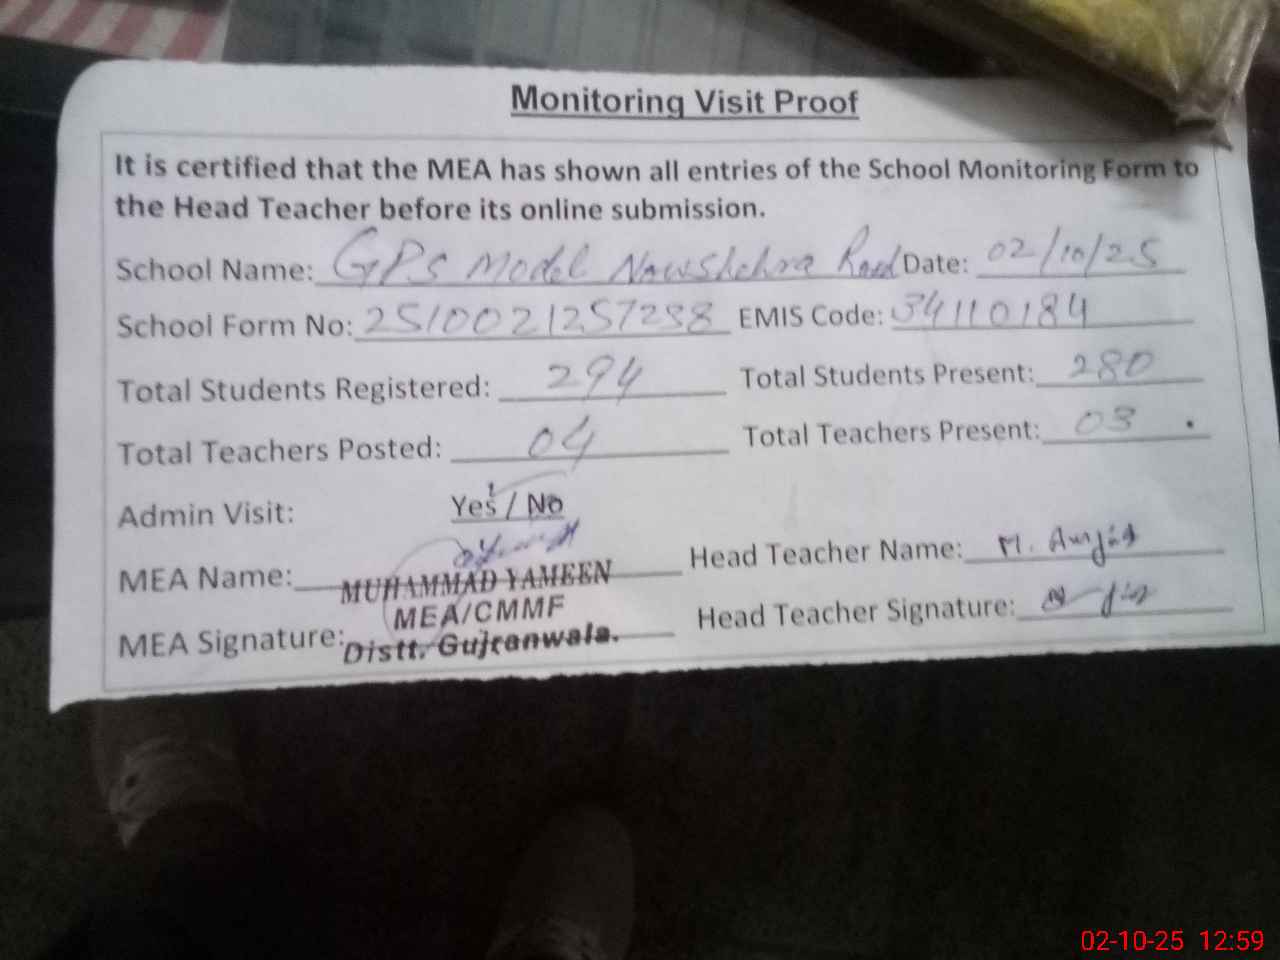 Monitoring Visit Proof
It is certified that the MEA has shown all entries of the School Monitoring Form to
the Head Teacher before its online submission.
School Name: GPS Model Nowshehra Road Date: 02/10/25
School Form No: 2510021257298 EMIS Code: 34110184
Total Students Registered: 294 Total Students Present: 280
Total Teachers Posted: 04 Total Teachers Present: 03
Admin Visit: Yes / No
MEA Name: MUHAMMAD YAMEEN Head Teacher Name: M. Amjad
MEA/CMMF
MEA Signature: Distt. Gujranwala. Head Teacher Signature:
02-10-25 12:59